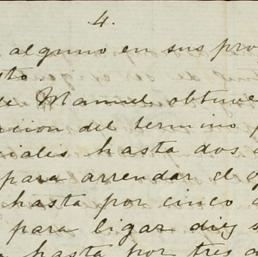 4.
alguno en sus pro
sto
de Manuel obtuvie
acion del termino p
ciales hasta dos a
para arrendar el
hasta por cinco
para ligar diez s
hasta por tres a